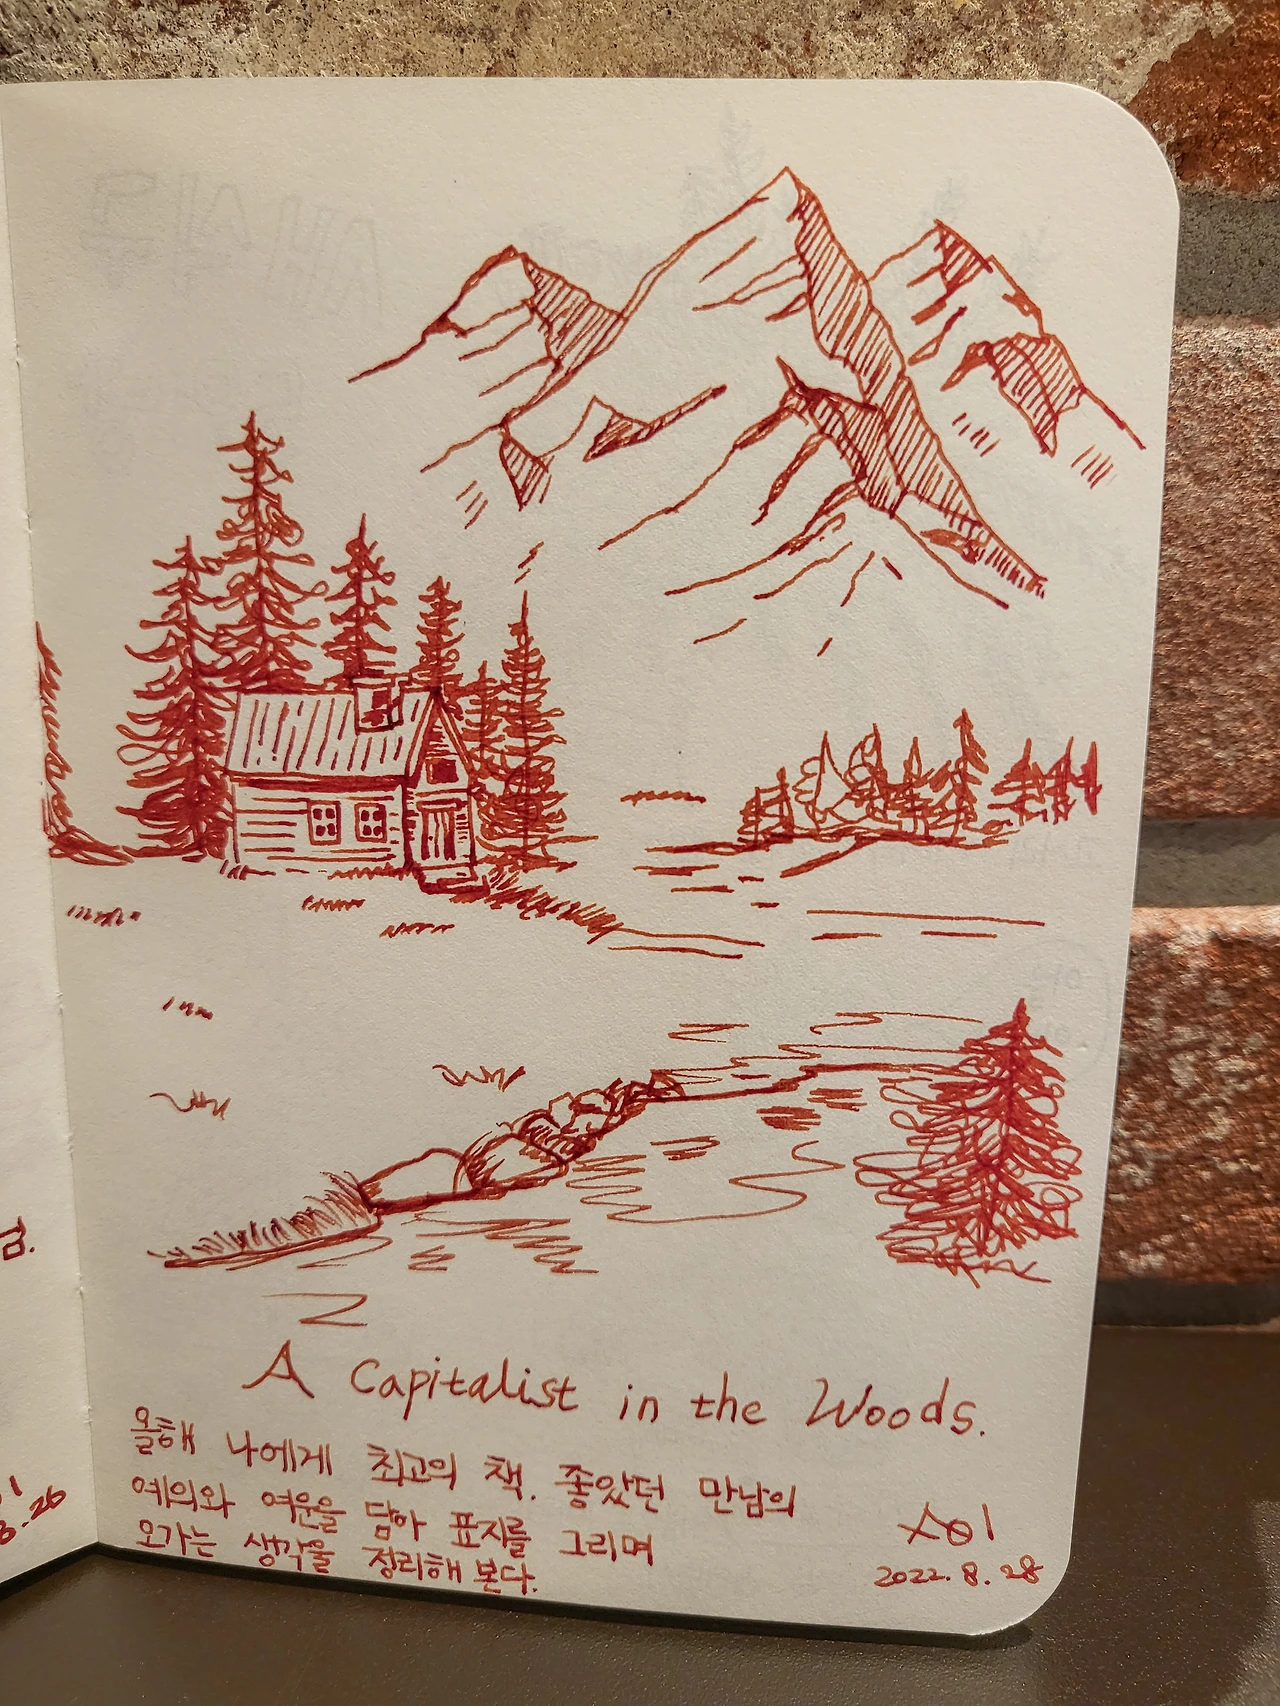 A Capitalist in the Woods.
올해 나에게 최고의 책. 좋았던 만남의
예의와 여운을 담아 표지를 그리며
오가는 생각을 정리해 본다.
2022. 8. 28